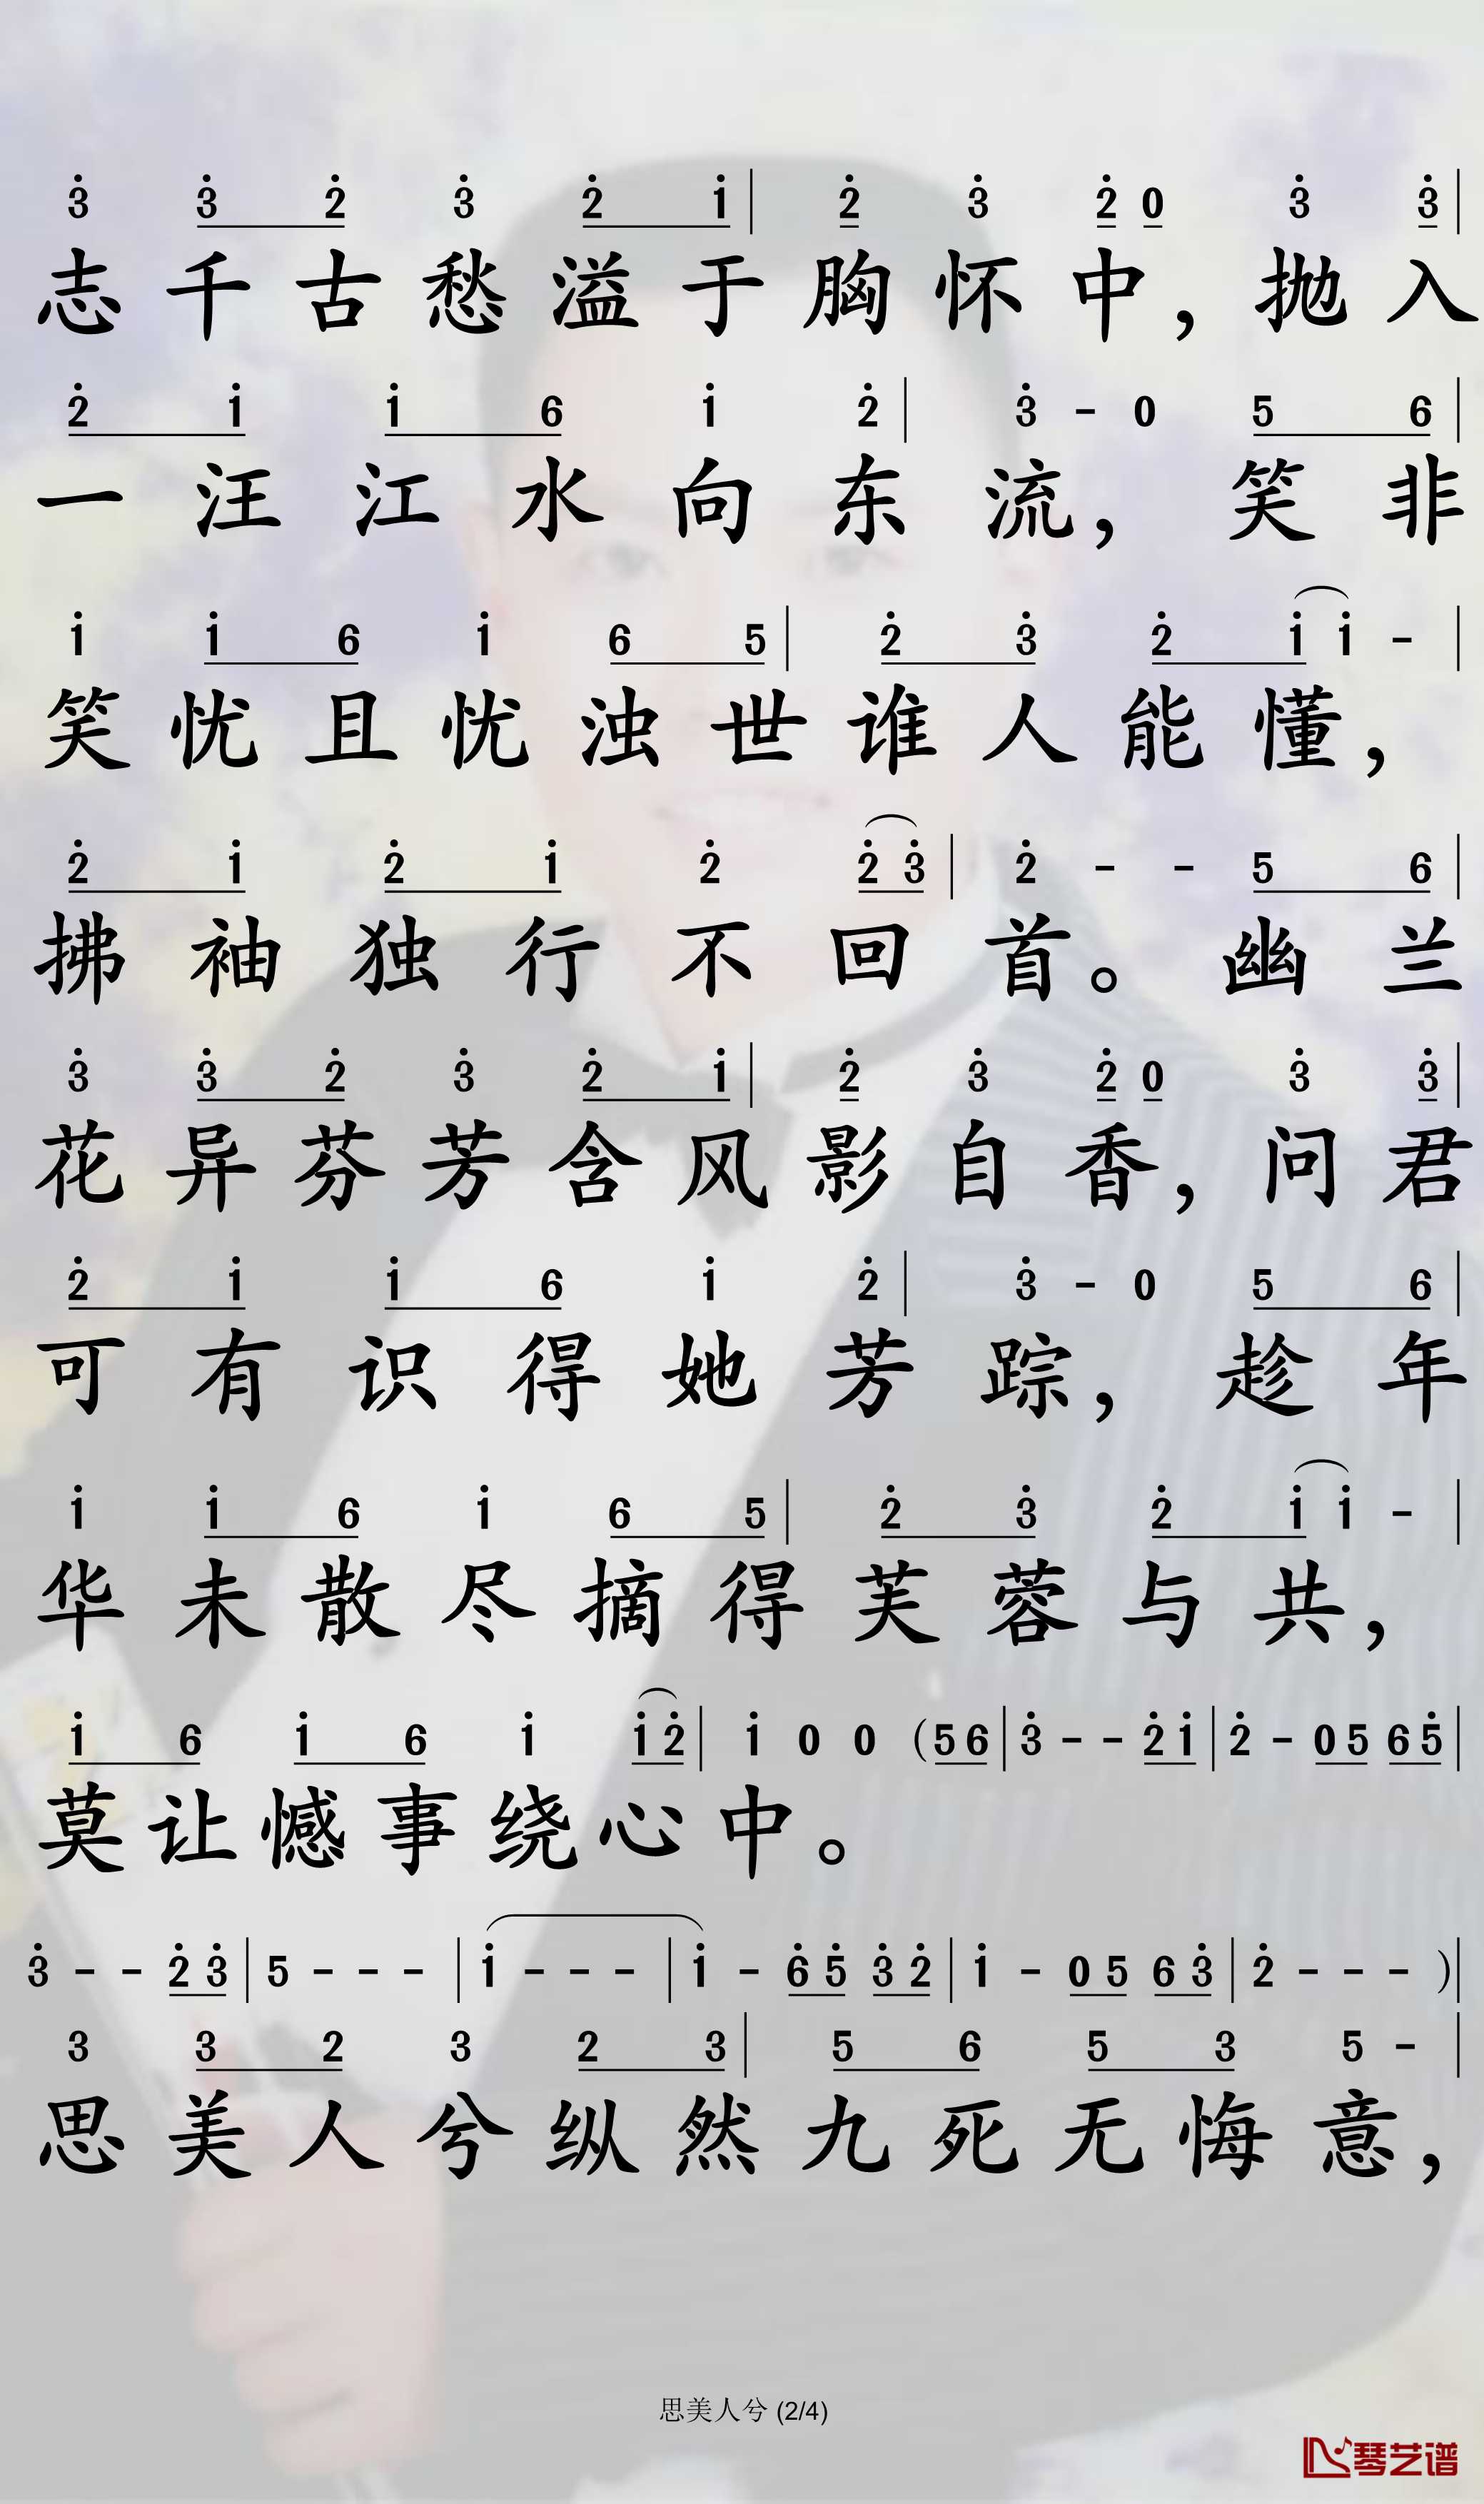 3̇ 3̇ 2̇ 3̇ 2̇ 1̇ | 2̇ 3̇ 2̇ 0 3̇ 3̇ |
志千古愁溢于胸怀中，抛入
2̇ 1̇ 1̇ 6 1̇ 2̇ | 3̇ - 0 5 6 |
一汪江水向东流，笑非
1̇ 1̇ 6 1̇ 6 5 | 2̇ 3̇ 2̇ 1̇ 1̇ - |
笑忧且忧浊世谁人能懂，
2̇ 1̇ 2̇ 1̇ 2̇ 2̇ 3̇ | 2̇ - - 5 6 |
拂袖独行不回首。幽兰
3̇ 3̇ 2̇ 3̇ 2̇ 1̇ | 2̇ 3̇ 2̇ 0 3̇ 3̇ |
花异芬芳含风影自香，问君
2̇ 1̇ 1̇ 6 1̇ 2̇ | 3̇ - 0 5 6 |
可有识得她芳踪，趁年
1̇ 1̇ 6 1̇ 6 5 | 2̇ 3̇ 2̇ 1̇ 1̇ - |
华未散尽摘得芙蓉与共，
1̇ 6 1̇ 6 1̇ 1̇ 2̇ | 1̇ 0 0 (5 6 | 3̇ - - 2̇ 1̇ | 2̇ - 0 5 6 5̇ |
莫让憾事绕心中。
3̇ - - 2̇ 3̇ | 5 - - - | 1̇ - - - | 1̇ - 6̇ 5̇ 3̇ 2̇ | 1̇ - 0 5 6 3̇ | 2̇ - - - ) |
3 3 2 3 2 3 | 5 6 5 3 5 - |
思美人兮纵然九死无悔意，
思美人兮 (2/4)
琴艺谱